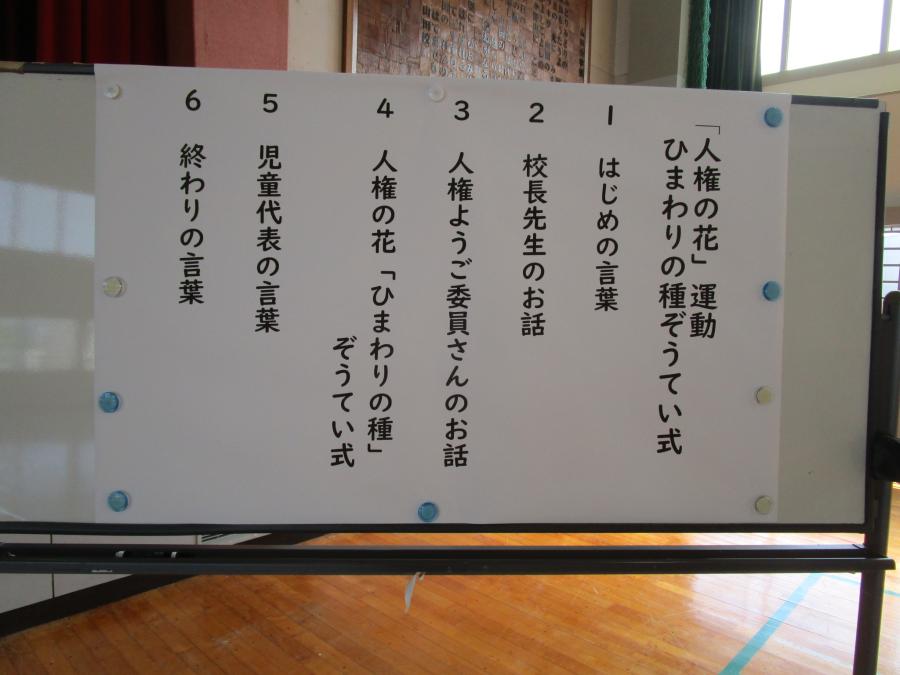 「人権の花」運動
ひまわりの種ぞうてい式
1 はじめの言葉
2 校長先生のお話
3 人権ようご委員さんのお話
4 人権の花「ひまわりの種」
ぞうてい式
5 児童代表の言葉
6 終わりの言葉